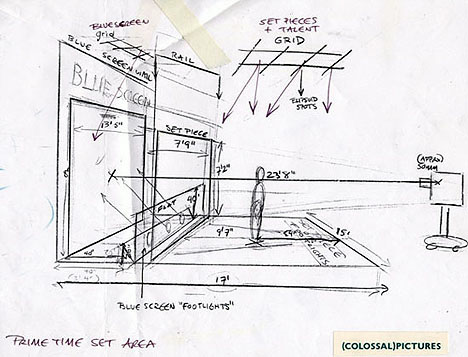 BLUESCREEN
grid
BLUE SCREEN WALL
RAIL
SET PIECES
+ TALENT
GRID
BLUESCREEN
SET PIECE
13'5"
7'9"
7'2"
23'8"
(APPROX)
50mm
FLAT
40"
9'7"
SET PIECE
LIGHTS
15'
17'
BLUE SCREEN "FOOTLIGHTS"
PRIME TIME SET AREA
(COLOSSAL)PICTURES